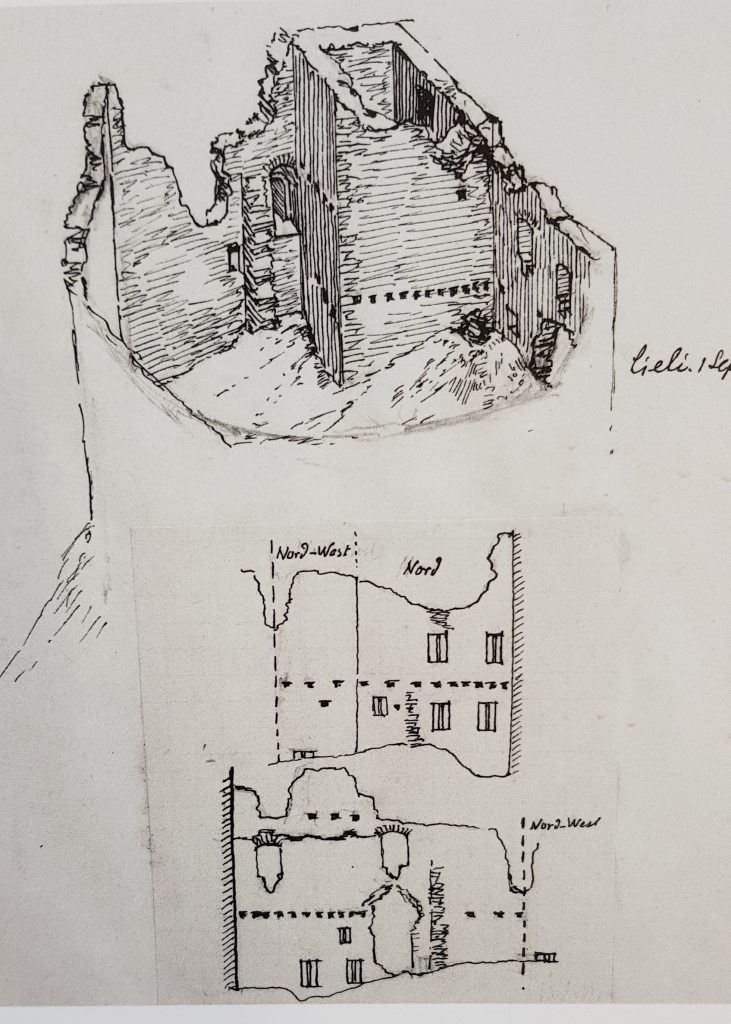 Lieli. 1 Sep
Nord-West Nord
Nord-West